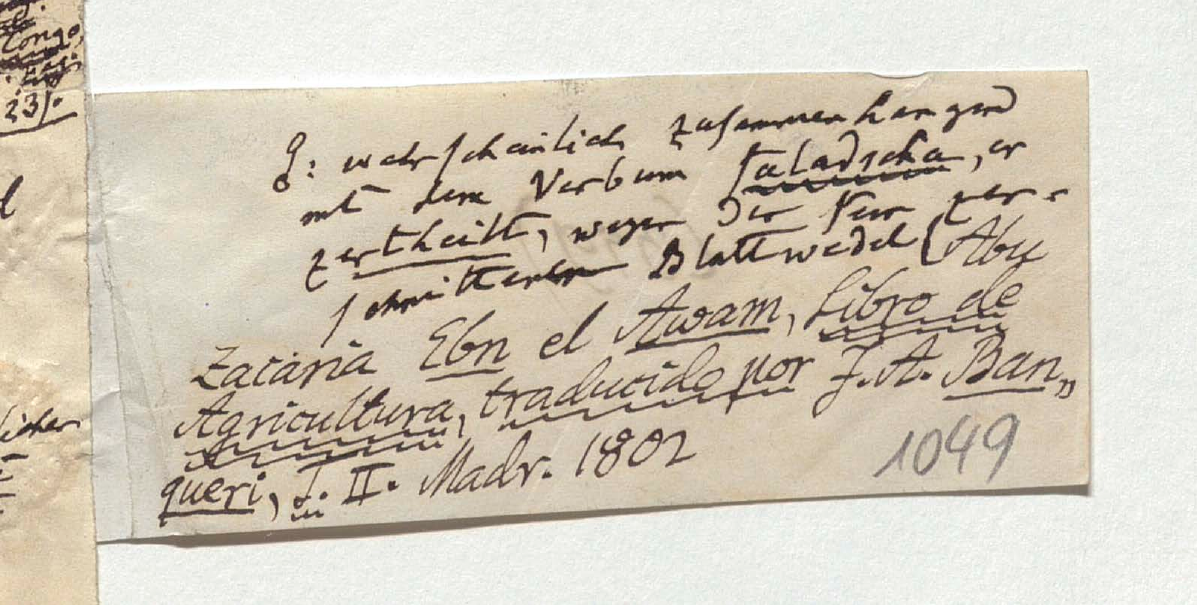 Congo,
23).
g: wahrscheinlich zusammenhangend
mit dem Verbum faladscha, er
zertheilt, wegen der fein zer-
schnittenen Blattwedel (Abu
Zacaria Ebn el Awam, Libro de
Agricultura, traducido por J. A. Ban„
queri, T. II. Madr. 1802
1049
licher